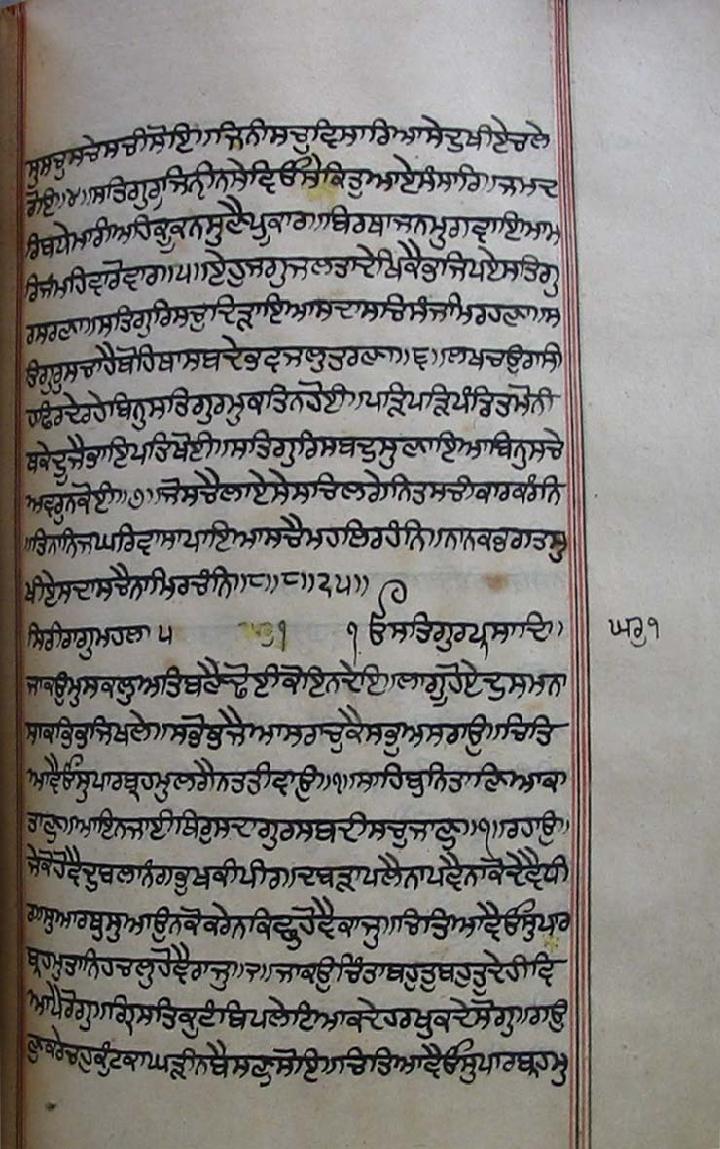 ਸੁਸਚੁਸਚੇਸਚੀਸੋਇ॥ਜਿਨੀਸਚੁਵਿਸਾਰਿਆਸੇਦੁਖੀਏਚਲੇ
ਰੋਇ॥੪॥ਸਤਿਗੁਰੁਜਿਨੀਨਸੇਵਿਓਸੇਕਿਤੁਆਏਸੰਸਾਰਿ॥ਜਮਦ
ਰਿਬਧੇਮਾਰੀਅਹਿਕੂਕਨਸੁਣੈਪੂਕਾਰ॥ਬਿਰਥਾਜਨਮੁਗਵਾਇਆਮ
ਰਿਜੰਮਹਿਵਾਰੋਵਾਰ॥੫॥ਏਹੁਜਗੁਜਲਤਾਦੇਖਿਕੈਭਜਿਪਏਸਤਿਗੁ
ਰਸਰਣਾ॥ਸਤਿਗੁਰਿਸਚੁਦਿੜਾਇਆਸਦਾਸਚਿਸੰਜਮਿਰਹਣਾ॥ਸ
ਤਿਗੁਰੁਸਚਾਹੈਬੋਹਿਥਾਸਬਦੇਭਵਜਲੁਤਰਣਾ॥੬॥ਲਖਚਉਰਾਸੀ
ਹਫਿਰਦੇਰਹੇਬਿਨੁਸਤਿਗੁਰਮੁਕਤਿਨਹੋਈ॥ਪੜਿਪੜਿਪੰਡਿਤਮੋਨੀ
ਥਕੇਦੂਜੈਭਾਇਪਤਿਖੋਈ॥ਸਤਿਗੁਰਿਸਬਦੁਸੁਣਾਇਆਬਿਨੁਸਚੇ
ਅਵਰੁਨਕੋਈ॥੭॥ਜੋਸਚੈਲਾਏਸੇਸਚਿਲਗੇਨਿਤਸਚੀਕਾਰਕਰੰਨਿ
॥ਤਿਨਾਨਿਜਘਰਿਵਾਸਾਪਾਇਆਸਚੈਮਹਲਿਰਹੰਨਿ॥ਨਾਨਕਭਗਤਸੁ
ਖੀਏਸਦਾਸਚੈਨਾਮਿਰਚੰਨਿ॥੮॥੮॥੨੫॥
ਸਿਰੀਰਾਗੁਮਹਲਾ ੫ ੴਸਤਿਗੁਰਪ੍ਰਸਾਦਿ॥
ਘਰੁ੧
ਜਾਕਉਮੁਸਕਲੁਅਤਿਬਣੈਢੋਈਕੋਇਨਦੇਇ॥ਲਾਗੂਹੋਏਦੁਸਮਨਾ
ਸਾਕਭਿਭਜਿਖਲੇ॥ਸਭੋਭਜੈਆਸਰਾਚੁਕੈਸਭੁਅਸਰਾਉ॥ਚਿਤਿ
ਆਵੈਓਸੁਪਾਰਬ੍ਰਹਮੁਲਗੈਨਤਤੀਵਾਉ॥੧॥ਸਾਹਿਬੁਨਿਤਾਣਿਆਕਾ
ਤਾਣੁ॥ਆਇਨਜਾਈਥਿਰੁਸਦਾਗੁਰਸਬਦੀਸਚੁਜਾਣੁ॥੧॥ਰਹਾਉ॥
ਜੇਕੋਹੋਵੈਦੁਬਲਾਨੰਗਭੁਖਕੀਪੀਰ॥ਦਮੜਾਪਲੈਨਾਪਵੈਨਾਕੋਦੇਵੈਧੀ
ਰ॥ਸੁਆਰਥੁਸੁਆਉਨਕੋਕਰੇਨਾਕਿਛੁਹੋਵੈਕਾਜੁ॥ਚਿਤਿਆਵੈਓਸੁਪਾਰ
ਬ੍ਰਹਮੁਤਾਨਿਹਚਲੁਹੋਵੈਰਾਜੁ॥੨॥ਜਾਕਉਚਿੰਤਾਬਹੁਤੁਬਹੁਤੁਦੇਹੀਵਿ
ਆਪੈਰੋਗੁ॥ਗ੍ਰਿਸਤਿਕੁਟੰਬਿਪਲੇਟਿਆਕਦੇਹਰਖੁਕਦੇਸੋਗੁ॥ਗਉ
ਣੁਕਰੇਚਹੁਕੁੰਟਕਾਘੜੀਨਬੈਸਣੁਸੋਇ॥ਚਿਤਿਆਵੈਓਸੁਪਾਰਬ੍ਰਹਮੁ